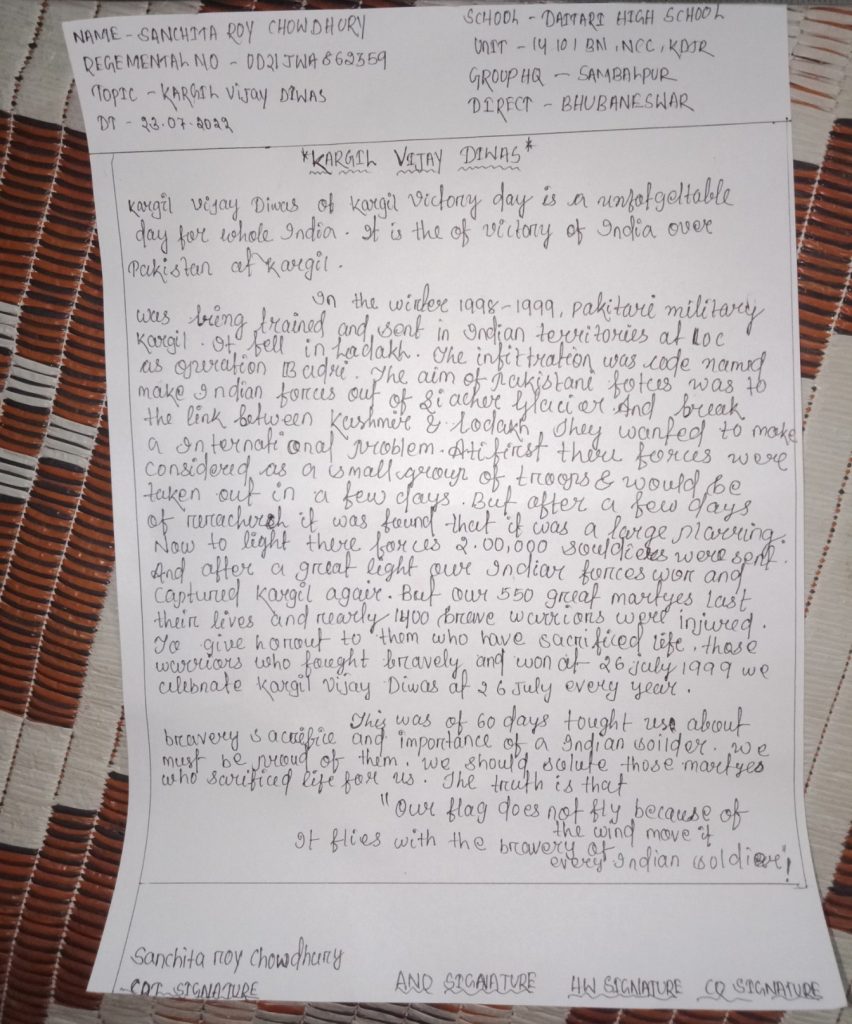 NAME - SANCHITA ROY CHOWDHURY
REGEMENTAL NO - OD21JWA862359
TOPIC - KARGIL VIJAY DIWAS
DT - 23.07.2022
SCHOOL - DAITARI HIGH SCHOOL
UNIT - 14 101 BN, NCC, KDJR
GROUP HQ - SAMBALPUR
DIRECT - BHUBANESWAR
*KARGIL VIJAY DIWAS*
Kargil vijay Diwas of Kargil victory day is a unfofgeltable
day for whole India. It is the of victory of India over
Pakistan at Kargil.
In the winter 1998-1999, pakitari military
was being trained and sent in Indian territories at LOC
Kargil. It fell in Ladakh. The infittration was code named
as operation Badri. The aim of pakistani forces was to
make Indian forces out of Siacher Glacier. And break
the link between Kashmir & Lodakh. They wanted to make
a International problem. At first there forces were
considered as a small group of troops & would be
taken out in a few days. But after a few days
of it was found that it was a large plarring.
Now to light there forces 2.00,000 souldiers were sent.
And after a great light our Indian forces won and
captured Kargil again. But our 550 great martyes last
their lives and nearly 1400 brave warriors were injured.
To give honout to them who have sacrificed life, those
warriors who fought bravely and won at 26 july 1999 we
celebnate Kargil Vijay Diwas at 26 July every year.
This was of 60 days tought use about
bravery sacrifice and importance of a Indian soilder. we
must be proud of them. we should salute those martyes
who sarificed life for us. The truth is that
"Our flag does not fly because of
the wind move it
It flies with the bravery of
every Indian soldier"!
Sanchita roy chowdhury
CDT SIGNATURE
ANO SIGNATURE
HW SIGNATURE
CO SIGNATURE